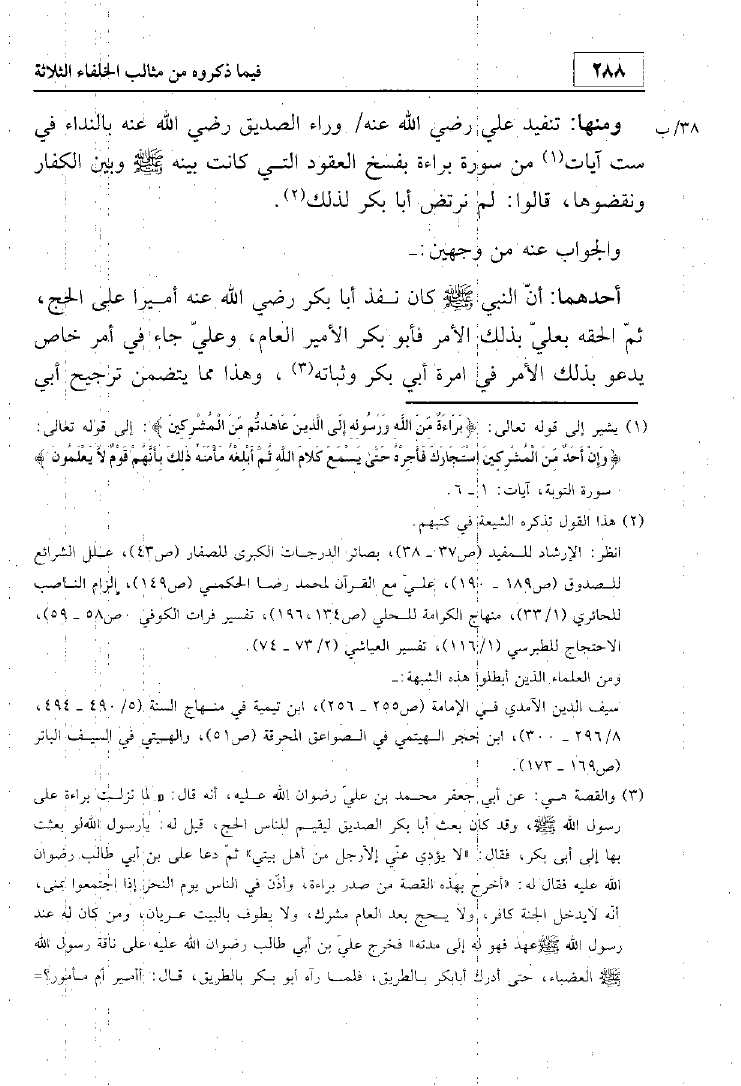 ٢٨٨ فيما ذكروه من مثالب الخلفاء الثلاثة
٣٨/ب ومنها: تنفيد علي رضي الله عنه/ وراء الصديق رضي الله عنه بالنداء في
ست آيات(١) من سورة براءة بفسخ العقود التي كانت بينه ﷺ وبين الكفار
ونقضوها، قالوا: لم نرتض أبا بكر لذلك(٢).
والجواب عنه من وجهين:ـ
أحدهما: أنّ النبي ﷺ كان نفذ أبا بكر رضي الله عنه أميرا على الحج،
ثمّ الحقه بعليّ بذلك الأمر فأبو بكر الأمير العام، وعليّ جاء في أمر خاص
يدعو بذلك الأمر في امرة أبي بكر وثباته(٣)، وهذا مما يتضمن ترجيح أبي
(١) يشير إلى قوله تعالى: ﴿بَرَاءَةٌ مِّنَ اللَّهِ وَرَسُولِهِ إِلَى الَّذِينَ عَاهَدتُّم مِّنَ الْمُشْرِكِينَ﴾: إلى قوله تعالى:
﴿وَإِنْ أَحَدٌ مِّنَ الْمُشْرِكِينَ اسْتَجَارَكَ فَأَجِرْهُ حَتَّى يَسْمَعَ كَلَامَ اللَّهِ ثُمَّ أَبْلِغْهُ مَأْمَنَهُ ذَلِكَ بِأَنَّهُمْ قَوْمٌ لَا يَعْلَمُونَ﴾
سورة التوبة، آيات: ١ـ ٦.
(٢) هذا القول تذكره الشيعة في كتبهم.
انظر: الإرشاد للمفيد (ص٣٧ ـ ٣٨)، بصائر الدرجات الكبرى للصفار (ص٤٣)، علل الشرائع
للصدوق (ص١٨٩ ـ ١٩٠)، عليّ مع القرآن لمحمد رضا الحكمني (ص١٤٩)، إلزام الناصب
للحائري (٣٣/١)، منهاج الكرامة للحلي (ص١٣٤، ١٩٦)، تفسير فرات الكوفي ص٥٨ ـ ٥٩)،
الاحتجاج للطبرسي (١١٦/١)، تفسير العياشي (٧٣/٢ ـ ٧٤).
ومن العلماء الذين أبطلوا هذه الشبهة:ـ
سيف الدين الآمدي في الإمامة (ص٢٥٥ ـ ٢٥٦)، ابن تيمية في منهاج السنة (٤٩٠/٥ ـ ٤٩٤،
٢٩٦/٨ ـ ٣٠٠)، ابن حجر الهيتمي في الصواعق المحرقة (ص٥١)، والهيتي في السيف الباتر
(ص١٦٩ ـ ١٧٣).
(٣) والقصة هي: عن أبي جعفر محمد بن عليّ رضوان الله عليه، أنه قال: «لما نزلت براءة على
رسول الله ﷺ، وقد كان بعث أبا بكر الصديق ليقيم للناس الحج، قيل له: يارسول الله لو بعثت
بها إلى أبى بكر، فقال: «لا يؤدي عنّي إلارجل من أهل بيتي» ثمّ دعا على بن أبي طالب رضوان
الله عليه فقال له: «أخرج بهذه القصة من صدر براءة، وأذّن في الناس يوم النحر إذا اجتمعوا بمنى،
أنه لايدخل الجنة كافر، ولا يحج بعد العام مشرك، ولا يطوف بالبيت عريان، ومن كان له عند
رسول الله ﷺ عهد فهو له إلى مدته» فخرج عليّ بن أبي طالب رضوان الله عليه على ناقة رسول الله
ﷺ العضباء، حتى أدرك أبابكر بالطريق، فلما رآه أبو بكر بالطريق، قال: أأمير أم مأمور؟=